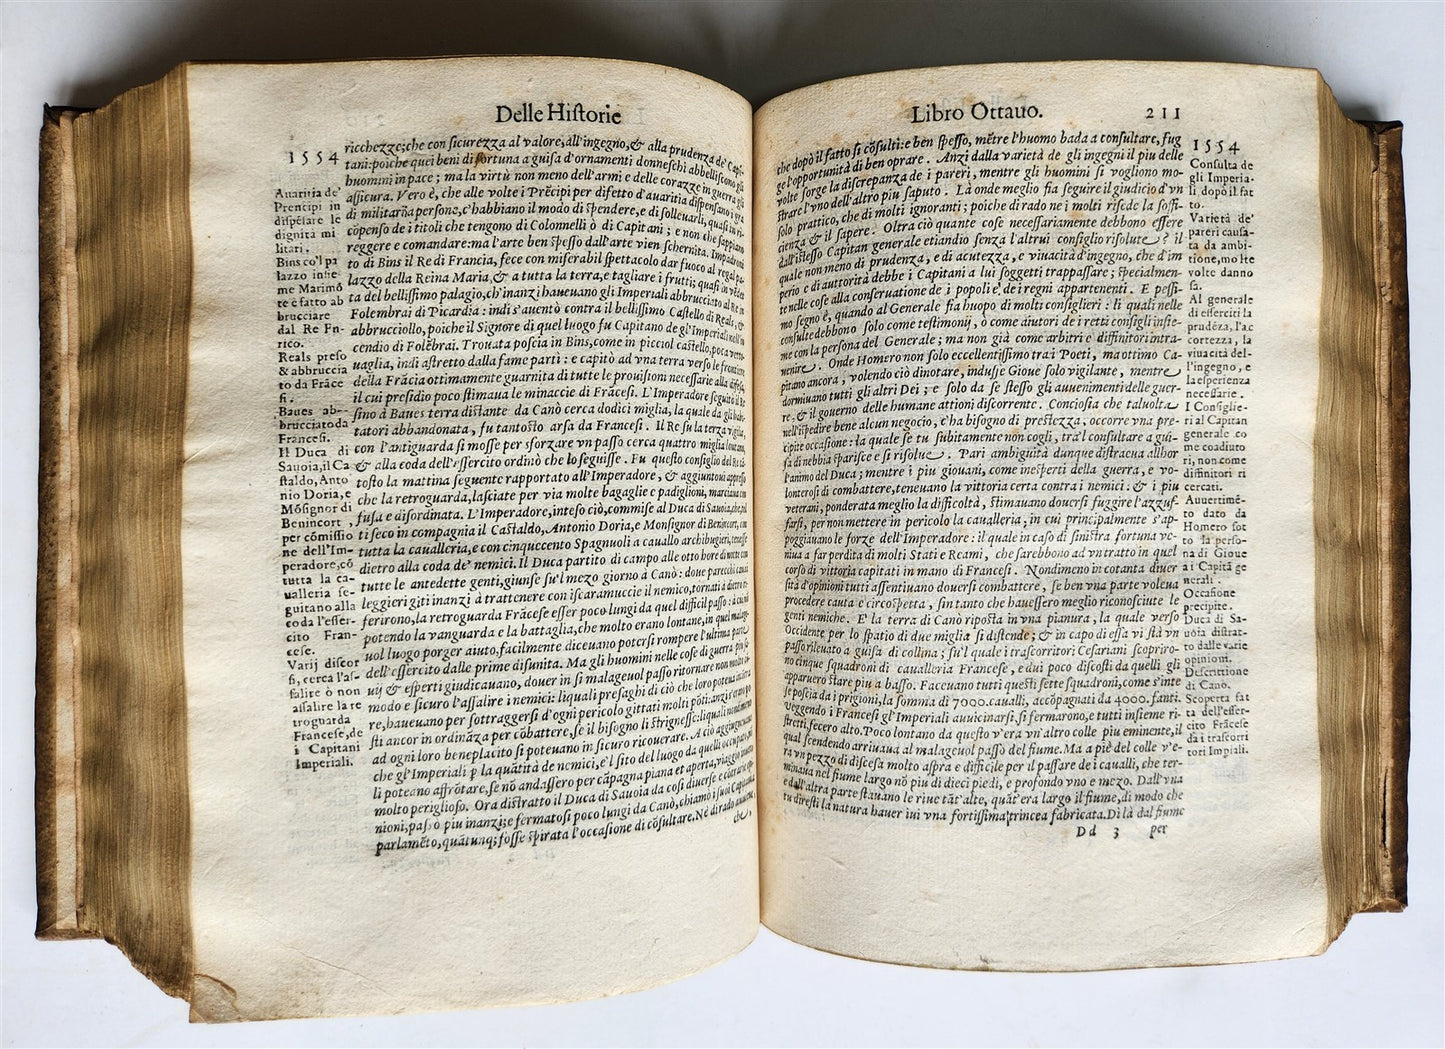 Delle Historie
1554
ricchezze; che con sicurezza al valore, all'ingegno, & alla prudenza de' Capi-
tani: poiche quei beni di fortuna a guisa d'ornamenti donneschi abbelliscono gli
huomini in pace; ma la virtù non meno dell'armi e delle corazze in guerra gli
assicura. Vero è, che alle volte i Prēcipi per difetto d'auaritia dispensano i gra
di militari a persone, c'habbiano il modo di spendere, e di solleuarli, quasi in ri-
cōpenso de i titoli che tengono di Colonnelli ò di Capitani; e non che sappiano
reggere e comandare: ma l'arte ben spesso dall'arte vien schernita. Impadroni
to di Bins il Re di Francia, fece con miserabil spettacolo dar fuoco al regal pa-
lazzo della Reina Maria, & a tutta la terra, e tagliare i frutti; quasi in vēdet
ta del bellissimo palagio, ch'inanzi haueuano gli Imperiali abbrucciato al Re in
Folembrai di Picardia: indi s'auentò contra il bellissimo Castello di Reals, &
abbrucciollo, poiche il Signore di quel luogo fu Capitano de gl'Imperiali nell'in
cendio di Folēbrai. Trouata poscia in Bins, come in picciol castello, poca vetto-
uaglia, indi astretto dalla fame partì: e capitò ad vna terra verso le frontiere
della Frācia ottimamente guarnita di tutte le prouisioni necessarie alla difesa,
il cui presidio poco stimaua le minaccie di Frācesi. L'Imperadore seguitò il Re
sino à Baues terra distante da Canò cerca dodici miglia, la quale da gli habi-
tatori abbandonata, fu tantosto arsa da Francesi. Il Re su la terza vigilia,
con l'antiguarda si mosse per sforzare vn passo cerca quattro miglia lontano,
& alla coda dell'essercito ordinò che lo seguisse. Fu questo consiglio del Re tā
tosto la mattina seguente rapportato all'Imperadore, & aggiuntoui appresso
che la retroguarda, lasciate per via molte bagaglie e padiglioni, marciaua con
fusa e disordinata. L'Imperadore, inteso ciò, commise al Duca di Sauoia, che, vni
ti seco in compagnia il Castaldo, Antonio Doria, e Monsignor di Benincort, con
tutta la caualleria, e con cinquecento Spagnuoli a cauallo archibugieri, tenesse
dietro alla coda de' nemici. Il Duca partito di campo alle otto hore di notte con
tutte le antedette genti, giunse su'l mezo giorno à Canò: doue parecchi caualli
leggieri giti inanzi à trattenere con iscaramuccie il nemico, tornati a dietro ri-
ferirono, la retroguarda Frācese esser poco lungi da quel difficil passo: à cui nō
potendo la vanguarda e la battaglia, che molto erano lontane, in quel malage-
uol luogo porger aiuto, facilmente diceuano potersi rompere l'ultima parte
dell'essercito dalle prime disunita. Ma gli huomini nelle cose di guerra più sa
uij & esperti giudicauano, douer in sì malageuol passo ritornare non molto in
modo e sicuro l'assalire i nemici: liquali presaghi di ciò che loro potea incōtra
re, haueuano per sottraggersi d'ogni pericolo gittati molti pōti: anzi s'erano po
sti ancor in ordināza per cōbattere, se il bisogno li strignesse: liquali nondimeno
ad ogni loro beneplacito si poteuano in sicuro ricourare. A ciò aggiugneuano
che gl'Imperiali p la quātità de nemici, e'l sito del luogo da quelli occupato, nō
li poteano affrōtare, se nō andassero per cāpagna piana et aperta, viaggio inuero
molto periglioso. Ora distratto il Duca di Sauoia da così diuerse e contrarie opi
nioni, passò più inanzi: e fermatosi poco lungi da Canò, chiamò i suoi Capitani a
parlamēto, quātunq; fosse spirata l'occasione di cōsultare. Nè di rado auuiene,
che,
Auaritia de'
Prencipi in
dispēsare le
dignità mi
litari.
Bins co'l pa
lazzo insie-
me Marimō
te è fatto ab
brucciare
dal Re En-
rico.
Reals preso
& abbruccia
to da Frāce
si.
Baues ab-
brucciato da
Francesi.
Il Duca di
Sauoia, il Ca
staldo, Anto
nio Doria, e
Mōsignor di
Benincort,
per cōmissio
ne dell'Im-
peradore, cō
tutta la ca-
ualleria se-
guitano alla
coda l'esser-
cito Fran-
cese.
Varij discor
si, cerca l'as-
salire ò non
assalire la re
troguarda
Francese, de
i Capitani
Imperiali.
Libro Ottauo.
211
1554
che dopò il fatto si cōsulti: e ben spesso, mētre l'huomo bada a consultare, fug
ge l'opportunità di ben oprare. Anzi dalla varietà de gli ingegni il piu delle
volte sorge la discrepanza de i pareri, mentre gli huomini si vogliono mo-
strare l'vno dell'altro piu saputo. Là onde meglio fia seguire il giudicio d'vn
solo prattico, che di molti ignoranti; poiche di rado ne i molti risede la soffi-
cienza & il sapere. Oltra ciò quante cose necessariamente debbono essere
dall'istesso Capitan generale etiandio senza l'altrui consiglio risolute? il
quale non meno di prudenza, e di acutezza, e viuacità d'ingegno, che d'im
perio e di autorità debbe i Capitani a lui soggetti trappassare; specialmen-
te nelle cose alla conseruatione de i popoli e' de i regni appartenenti. E pessi-
mo segno è, quando al Generale fia huopo di molti consiglieri: li quali nelle
consulte debbono solo come testimonij, ò come aiutori de i retti consigli insie-
me con la persona del Generale; ma non già come arbitri e diffinitori intra-
uenire. Onde Homero non solo eccellentissimo tra i Poeti, ma ottimo Ca-
pitano ancora, volendo ciò dinotare, indusse Gioue solo vigilante, mentre
dormiuano tutti gli altri Dei; e solo da se stesso gli auuenimenti delle guer-
re, & il gouerno delle humane attioni discorrente. Conciosia che taluolta
nell'ispedire bene alcun negocio, c'ha bisogno di prestezza, occorre vna pre-
cipite occasione: la quale se tu subitamente non cogli, tra'l consultare a gui-
sa di nebbia sparisce e si risolue. Pari ambiguità dunque distraeua allhor
l'animo del Duca; mentre i piu giouani, come inesperti della guerra, e vo-
lonterosi di combattere, teneuano la vittoria certa contra i nemici. & i piu
veterani, ponderata meglio la difficoltà, stimauano douersi fuggire l'azzuf-
farsi, per non mettere in pericolo la caualleria, in cui principalmente s'ap-
poggiauano le forze dell'Imperadore: il quale in caso di sinistra fortuna ve-
niua a far perdita di molti Stati e Reami, che sarebbono ad vn tratto in quel
corso di vittoria capitati in mano di Francesi. Nondimeno in cotanta diuer
sità d'opinioni tutti assentiuano douersi combattere, se ben vna parte voleua
procedere cauta e circospetta, sin tanto che hauessero meglio riconosciute le
genti nemiche. E' la terra di Canò riposta in vna pianura, la quale verso
Occidente per lo spatio di due miglia si distende; & in capo di essa vi stà vn
passo rileuato a guisa di collina; su'l quale i trascorritori Cesariani scopriro-
no cinque squadroni di caualleria Francese, e dui poco discosti da quelli gli
apparuero stare piu a basso. Faceuano tutti questi sette squadroni, come s'inte
se poscia da i prigioni, la somma di 7000. caualli, accōpagnati da 4000. fanti.
Veggendo i Francesi gl'Imperiali auuicinarsi, si fermarono, e tutti insieme ri-
stretti, fecero alto. Poco lontano da questo v'era vn'altro colle piu eminente, il
qual scendendo arriuaua al malageuol passo del fiume. Ma a piè del colle v'e-
ra vn pezzo di discesa molto aspra e difficile per il passare de i caualli, che ter-
minaua nel fiume largo nō piu di dieci piedi, e profondo vno e mezo. Dall'vna
e dall'altra parte stauano le riue tāt'alte, quāt'era largo il fiume, di modo che
tu diresti la natura hauer iui vna fortissima trincea fabricata. Di là dal fiume
Dd 3 per
Consulta de
gli Imperia-
li dopò il fat
to.
Varietà de'
pareri causa-
ta da ambi-
tione, molte
volte danno
sa.
Al generale
di esserciti la
prudēza, l'ac
cortezza, la
viuacità del-
l'ingegno, e
la esperienza
necessarie.
I Consiglie-
ri al Capitan
generale co
me coadiuto
ri, non come
diffinitori ri
cercati.
Auuertimē-
to dato da
Homero sot
to la perso-
na di Gioue
a i Capitā ge
nerali.
Occasione
precipite.
Duca di Sa-
uoia distrat-
to dalle varie
opinioni.
Descrittione
di Canò.
Scoperta fat
ta dell'esser-
cito Frācese
da i trascorri
tori Impiali.